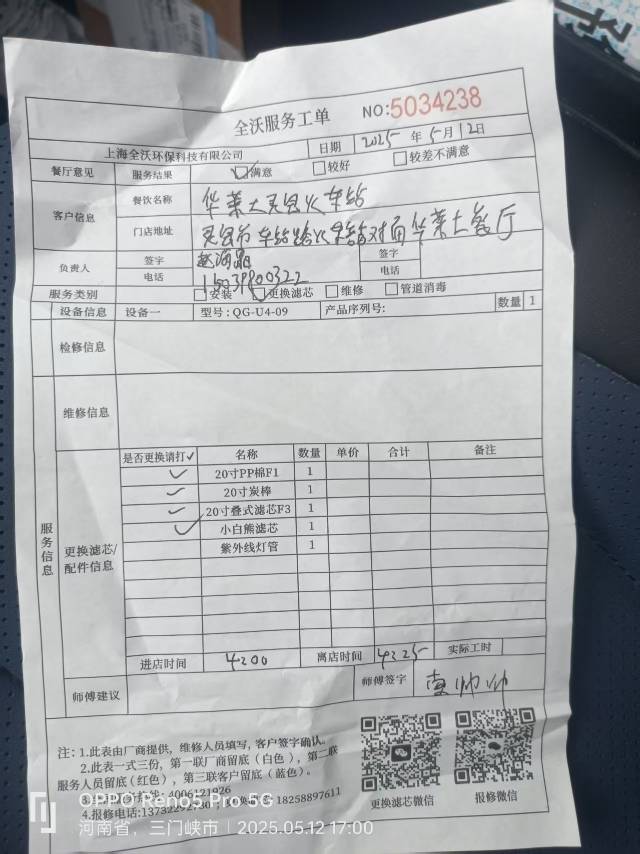 全沃服务工单 NO:5034238
上海全沃环保科技有限公司 日期 2025年5月12日
餐厅意见 服务结果 满意 较好 较差不满意
客户信息 餐饮名称 华莱士灵宝火车站
门店地址 灵宝市车站路火车站对面华莱士餐厅
负责人 签字 签字
电话 电话
服务类别 安装 更换滤芯 维修 管道消毒
设备信息 设备一 型号:QG-U4-09 产品序列号: 数量 1
检修信息
维修信息
服务信息
更换滤芯/配件信息
是否更换请打✓ 名称 数量 单价 合计 备注
✓ 20寸PP棉F1 1
✓ 20寸炭棒 1
✓ 20寸叠式滤芯F3 1
✓ 小白熊滤芯 1
紫外线灯管 1
进店时间 4200 离店时间 4225 实际工时
师傅建议 师傅签字
注:1.此表由厂商提供,维修人员填写,客户签字确认。
2.此表一式三份,第一联厂商留底(白色),第二联
服务人员留底(红色),第三联客户留底(蓝色)。
4006121926
4.报修电话:137322 18258897611
更换滤芯微信 报修微信
OPPO Reno5 Pro 5G
河南省,三门峡市 | 2025.05.12 17:00